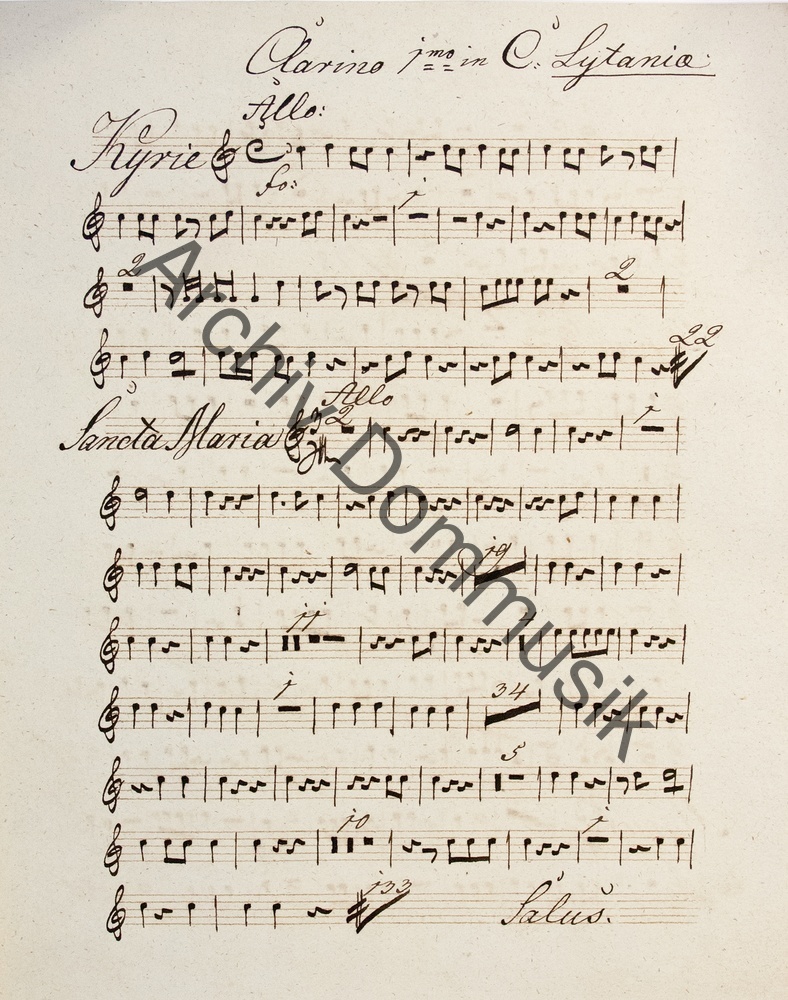 Clarino 1mo in C. Lytaniæ
Allo:
Kyrie
fo:
1
2
2
22
Allo
Sancta Maria
2
1
19
11
4
1
34
5
10
1
133
Salus.
Archiv Dommusik